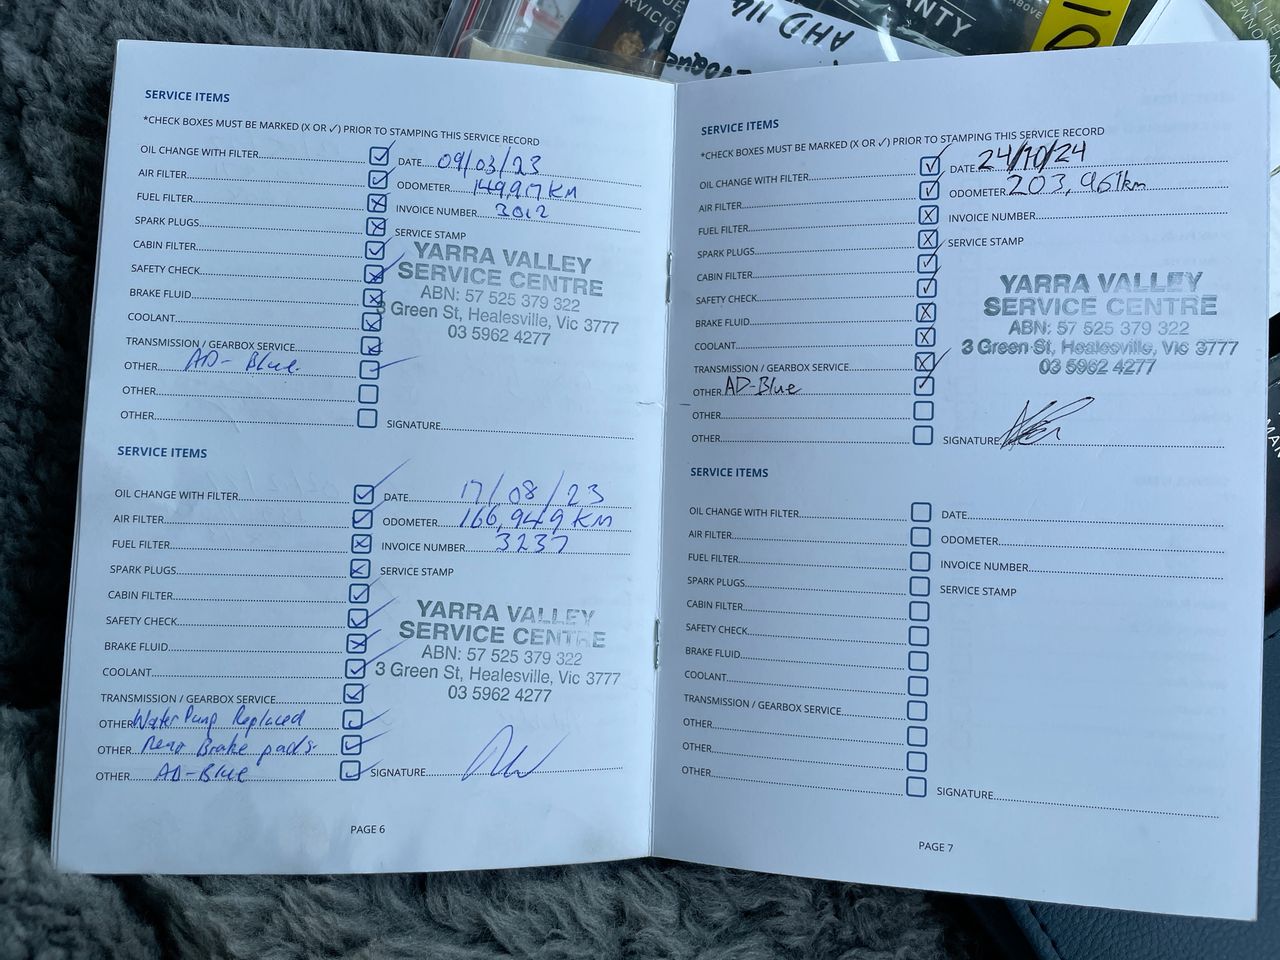 SERVICIO
ANTY
ABOVE
AHD 116
Evoque
10
SERVICE ITEMS
*CHECK BOXES MUST BE MARKED (X OR ✓) PRIOR TO STAMPING THIS SERVICE RECORD
OIL CHANGE WITH FILTER ✓ DATE 09/03/23
AIR FILTER ✓ ODOMETER 149,917 KM
FUEL FILTER X INVOICE NUMBER 3012
SPARK PLUGS X SERVICE STAMP
CABIN FILTER ✓
SAFETY CHECK ✓
BRAKE FLUID X
COOLANT
TRANSMISSION / GEARBOX SERVICE
OTHER AD-Blue ✓
OTHER
OTHER
YARRA VALLEY
SERVICE CENTRE
ABN: 57 525 379 322
3 Green St, Healesville, Vic 3777
03 5962 4277
SIGNATURE
SERVICE ITEMS
OIL CHANGE WITH FILTER ✓ DATE 17/08/23
AIR FILTER ✓ ODOMETER 166,949 KM
FUEL FILTER X INVOICE NUMBER 3237
SPARK PLUGS X SERVICE STAMP
CABIN FILTER ✓
SAFETY CHECK ✓
BRAKE FLUID X
COOLANT ✓
TRANSMISSION / GEARBOX SERVICE
OTHER Water Pump Replaced ✓
OTHER Rear Brake pads ✓
OTHER AD-Blue ✓
YARRA VALLEY
SERVICE CENTRE
ABN: 57 525 379 322
3 Green St, Healesville, Vic 3777
03 5962 4277
SIGNATURE
PAGE 6
SERVICE ITEMS
*CHECK BOXES MUST BE MARKED (X OR ✓) PRIOR TO STAMPING THIS SERVICE RECORD
OIL CHANGE WITH FILTER ✓ DATE 24/10/24
AIR FILTER ✓ ODOMETER 203,961km
FUEL FILTER X INVOICE NUMBER
SPARK PLUGS X SERVICE STAMP
CABIN FILTER ✓
SAFETY CHECK ✓
BRAKE FLUID X
COOLANT X
TRANSMISSION / GEARBOX SERVICE X
OTHER AD-Blue ✓
OTHER
OTHER
YARRA VALLEY
SERVICE CENTRE
ABN: 57 525 379 322
3 Green St, Healesville, Vic 3777
03 5962 4277
SIGNATURE
SERVICE ITEMS
OIL CHANGE WITH FILTER DATE
AIR FILTER ODOMETER
FUEL FILTER INVOICE NUMBER
SPARK PLUGS SERVICE STAMP
CABIN FILTER
SAFETY CHECK
BRAKE FLUID
COOLANT
TRANSMISSION / GEARBOX SERVICE
OTHER
OTHER
OTHER SIGNATURE
PAGE 7